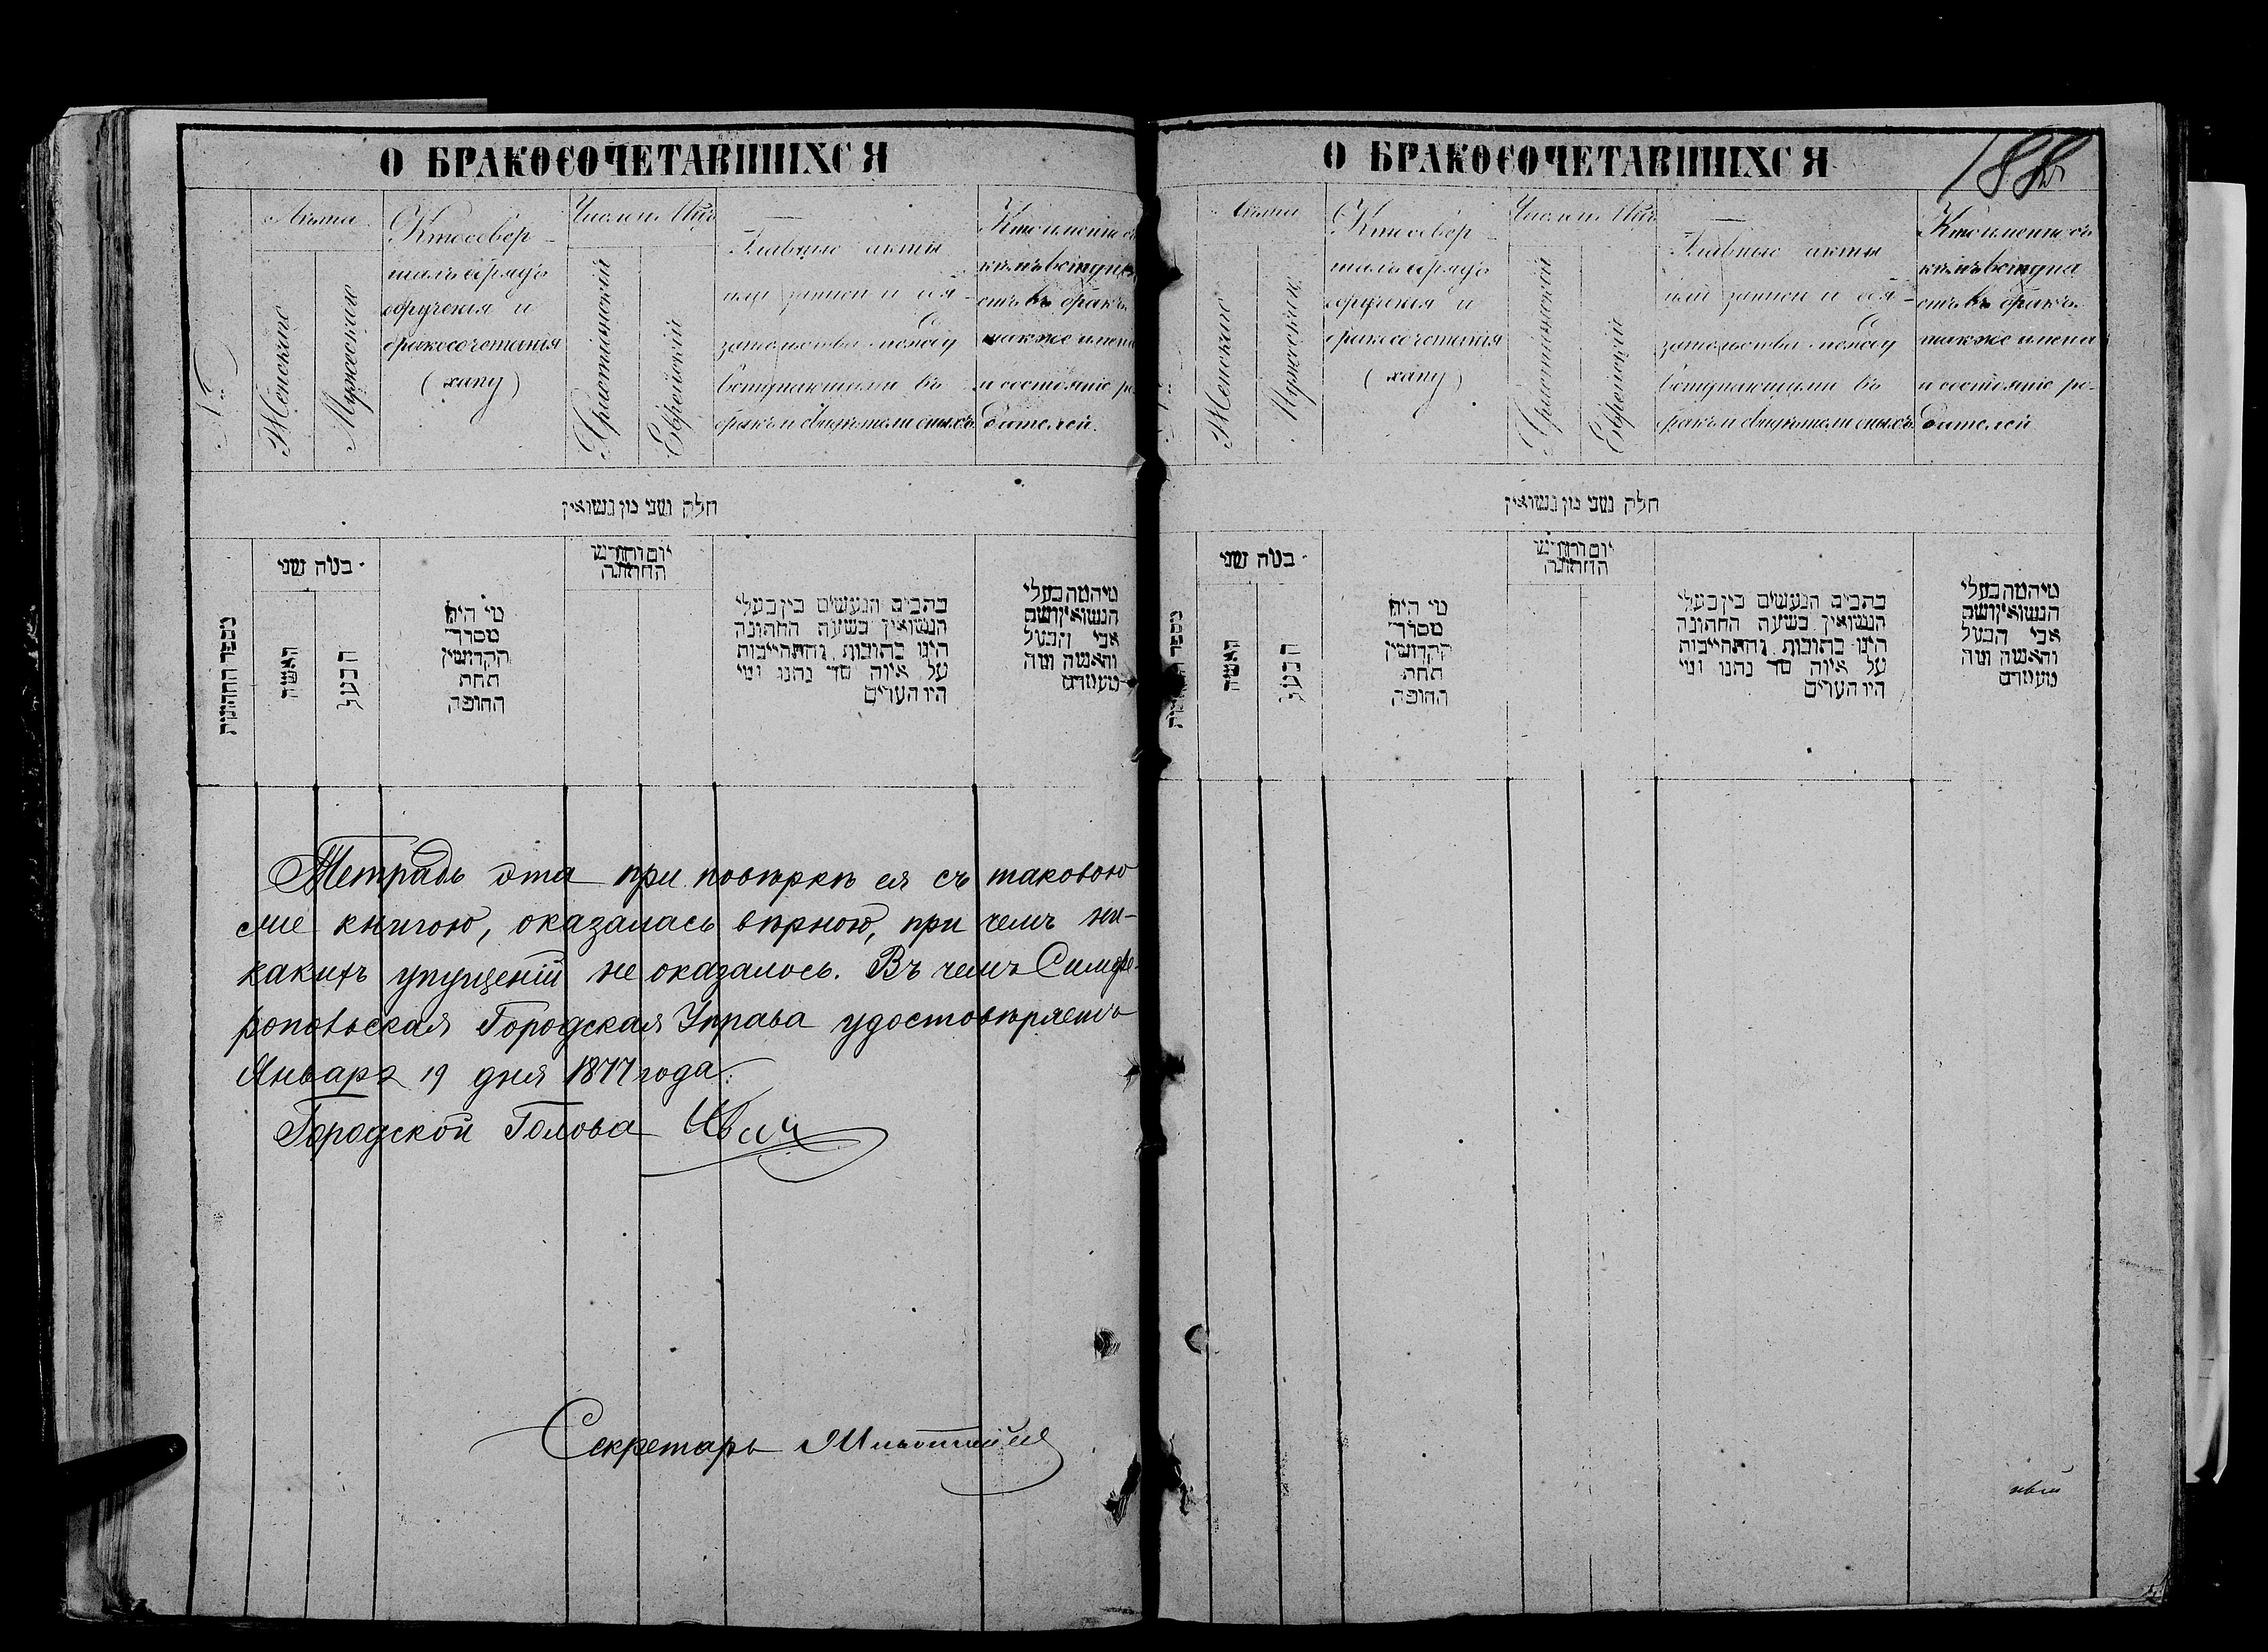 О БРАКОСОЧЕТАВШИХСЯ
№
Лѣта
Женскіе
Мужескіе
Кто совер-
шалъ обрядъ
обрученія и
бракосочетанія
(хупу)
Число и Мѣс.
Христіянскій
Еврейскій
Главные акты
или записи и обя-
зательства между
вступающими въ
бракъ и свидѣтели оныхъ
Кто именно съ
кѣмъ вступа
етъ въ бракъ
также имена
и состояніе ро-
дителей.
חלק שני מן נשואין
מספר החתונות
כמה שני
האשה
הבעל
מי היה
מסדר
הקדושין
תחת
החופה
יום וחודש
החתונה
כתבים הנעשים בין בעלי
הנשואין בשעת החתונה
היינו כתובות והתחייבות
על איזה סך נתנו ומי
היו העדים
מי המה בעלי
הנשואין ושם
אבי הבעל
והאשה ומה
מעמדם
Тетрадь эта при повѣркѣ ея съ таковою
же книгою, оказалась вѣрною, при чемъ ни-
какихъ упущеній не оказалось. Въ чемъ Симфе-
ропольская Городская Управа удостовѣряетъ
Января 19 дня 1877 года.
Городской Голова
Секретарь
О БРАКОСОЧЕТАВШИХСЯ
188
Лѣта
Женскіе
Мужескіе
Кто совер-
шалъ обрядъ
обрученія и
бракосочетанія
(хупу)
Число и Мѣс.
Христіянскій
Еврейскій
Главные акты
или записи и обя-
зательства между
вступающими въ
бракъ и свидѣтели оныхъ
Кто именно съ
кѣмъ вступа
етъ въ бракъ
также имена
и состояніе ро-
дителей
חלק שני מן נשואין
מספר החתונות
כמה שני
האשה
הבעל
מי היה
מסדר
הקדושין
תחת
החופה
יום וחודש
החתונה
כתבים הנעשים בין בעלי
הנשואין בשעת החתונה
היינו כתובות והתחייבות
על איזה סך נתנו ומי
היו העדים
מי המה בעלי
הנשואין ושם
אבי הבעל
והאשה ומה
מעמדם